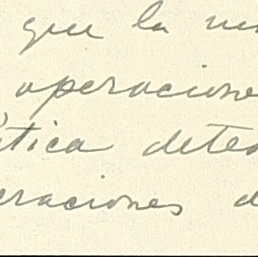 que la
operacione
tica dete
eraciones d